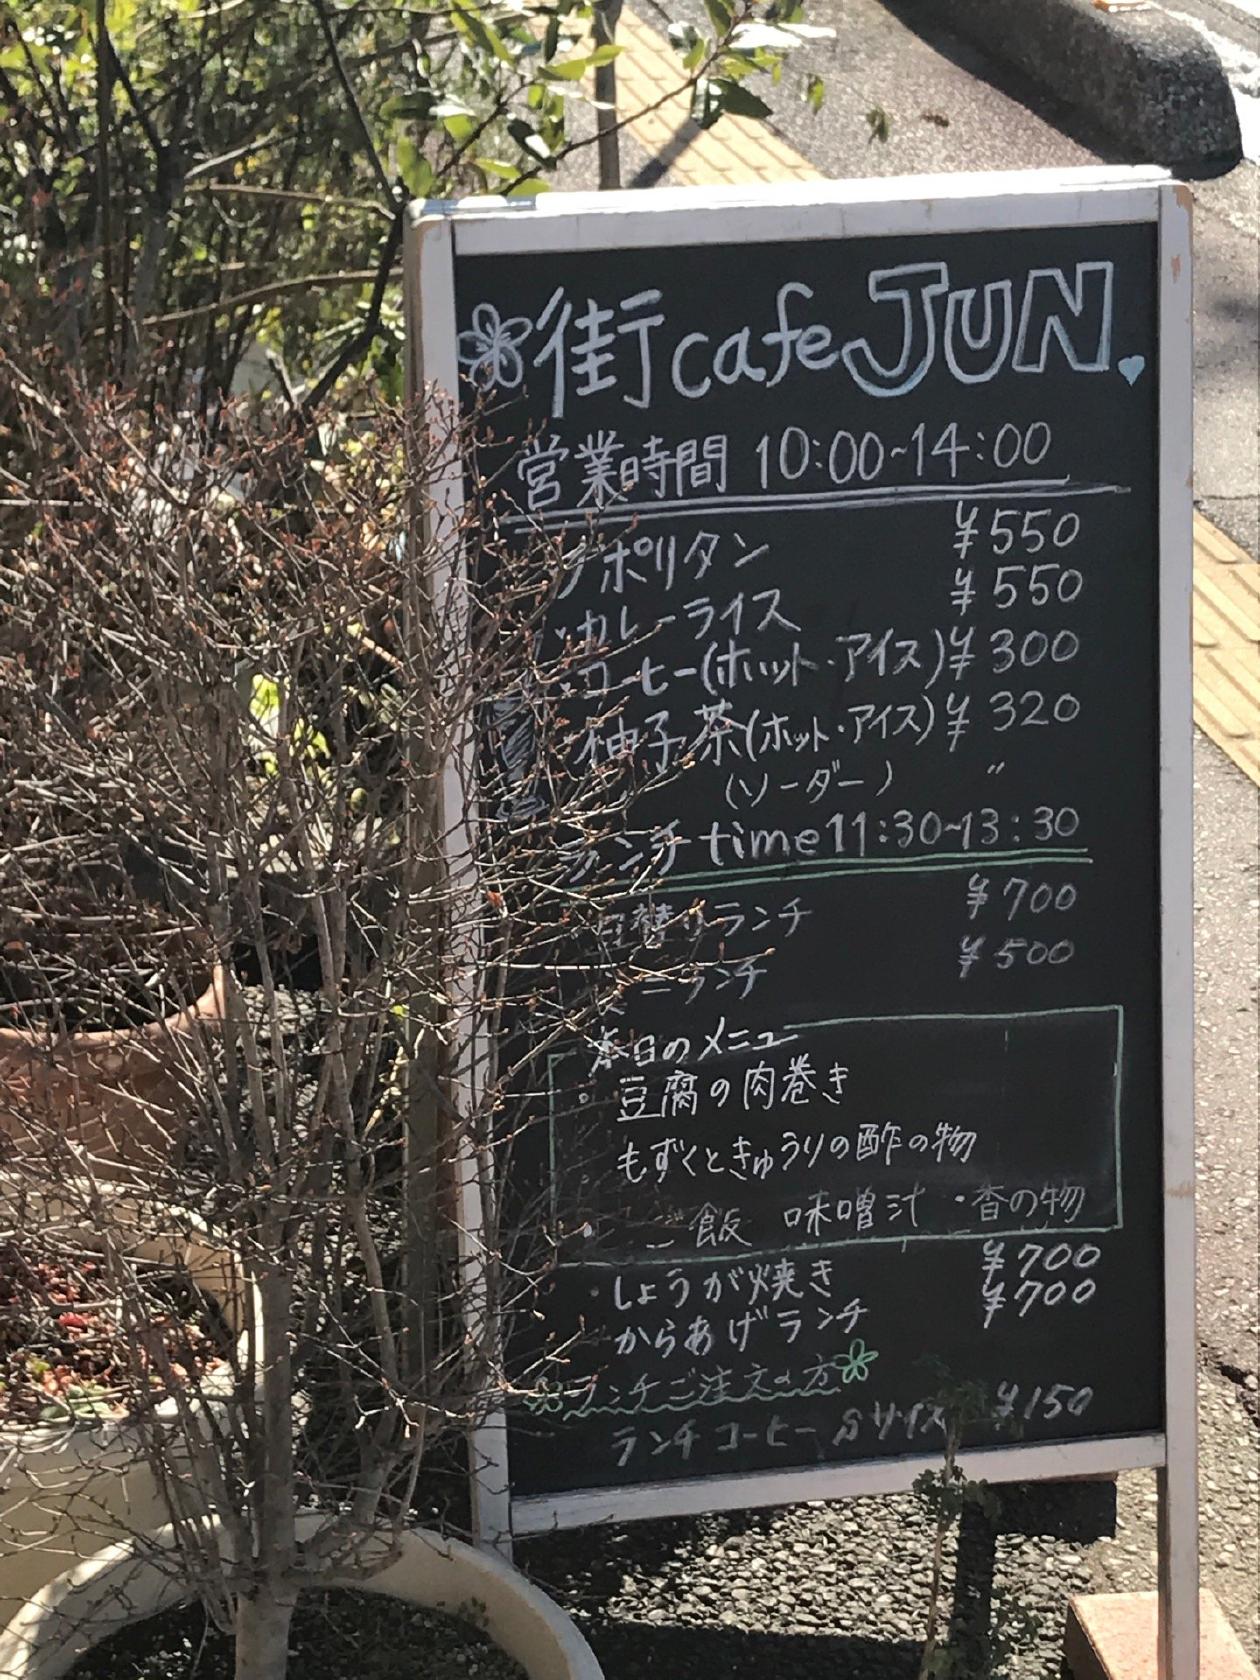 街cafe JUN
営業時間 10:00~14:00
ナポリタン ¥550
・カレーライス ¥550
・コーヒー(ホット・アイス) ¥300
・柚子茶(ホット・アイス) ¥320
(ソーダー) 〃
ランチtime 11:30~13:30
日替りランチ ¥700
ミニランチ ¥500
本日のメニュー
・豆腐の肉巻き
・もずくときゅうりの酢の物
・ご飯 味噌汁 ・香の物
・しょうが焼き ¥700
からあげランチ ¥700
ランチご注文の方
ランチコーヒー Sサイズ ¥150